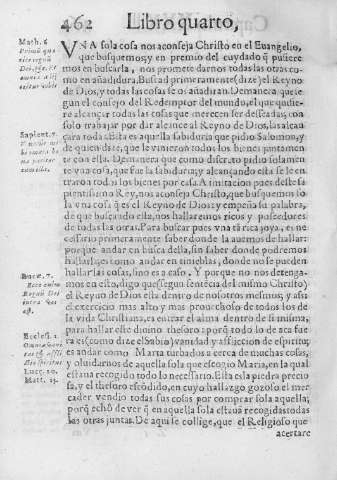 462 Libro quarto,
Math. 6
VNA sola cosa nos aconseja Christo en el Euangelio,
que busquemos, y en premio del cuydado q̃ pusiere
mos en buscarla, nos promete darnos todas las otras co-
mo en añadidura. Buscad primeramente (dize) el Reyno
de Dios, y todas las cosas se os añadiran. De manera que se
gun el consejo del Redemptor del mundo, el que quisie-
re alcançar todas las cosas que merecen ser desseadas, con
solo trabajar por dar alcance al Reyno de Dios, las alcan
çara todas. Esta es aquella sabiduria que pidio Salomon, y
de quien dize, que le vinieron todos los bienes juntamen-
te con ella. De manera que como discreto pidio sola men
te vna cosa, que fue la sabiduria, y alcançando esta se le en
traron todos los bienes por casa. A imitacion pues deste sa
pientissimo Rey, nos aconseja Christo, que busquemos so
la vna cosa q̃ es el Reyno de Dios: y empeña su palabra,
de que buscando ella, nos hallaremos ricos y posseedores
de todas las otras. Para buscar pues vna tã rica joya, es ne-
cessario primeramente saber donde la auemos de hallar:
porque andar en busca della, sin saber donde podremos
hallarla, es como andar en tinieblas, donde no se pueden
hallar las cosas, sino es a caso. Y porque no nos detenga-
mos en esto, digo que (segun sentẽcia del mismo Christo)
el Reyno de Dios esta dentro de nosotros mesmos; y assi
el exercicio mas alto y mas prouechoso de todos los de
la vida Christiana, es entrar el alma dentro de si misma,
para hallar este diuino thesoro: porq̃ todo lo de aca fue
ra es (como dize el Sabio) vanidad y affliccion de espiritu;
es andar como Marta turbados a cerca de muchas cosas,
y oluidarnos de aquella sola que escogio Maria, en la qual
estaua recogido todo lo necessario. Esta es la piedra precio
sa, y el thesoro escõdido, en cuyo hallazgo gozoso el mer
cader vendio todas sus cosas por comprar sola aquella:
porq̃ echõ de ver q̃ en aquella sola estaua recogidas todas
las otras juntas. De aqui se collige, que el Religioso que
acertare
Sapient. 7.
Luc. 7.
Ecclesi. 1.
Luc. 10.
Matt. 13.